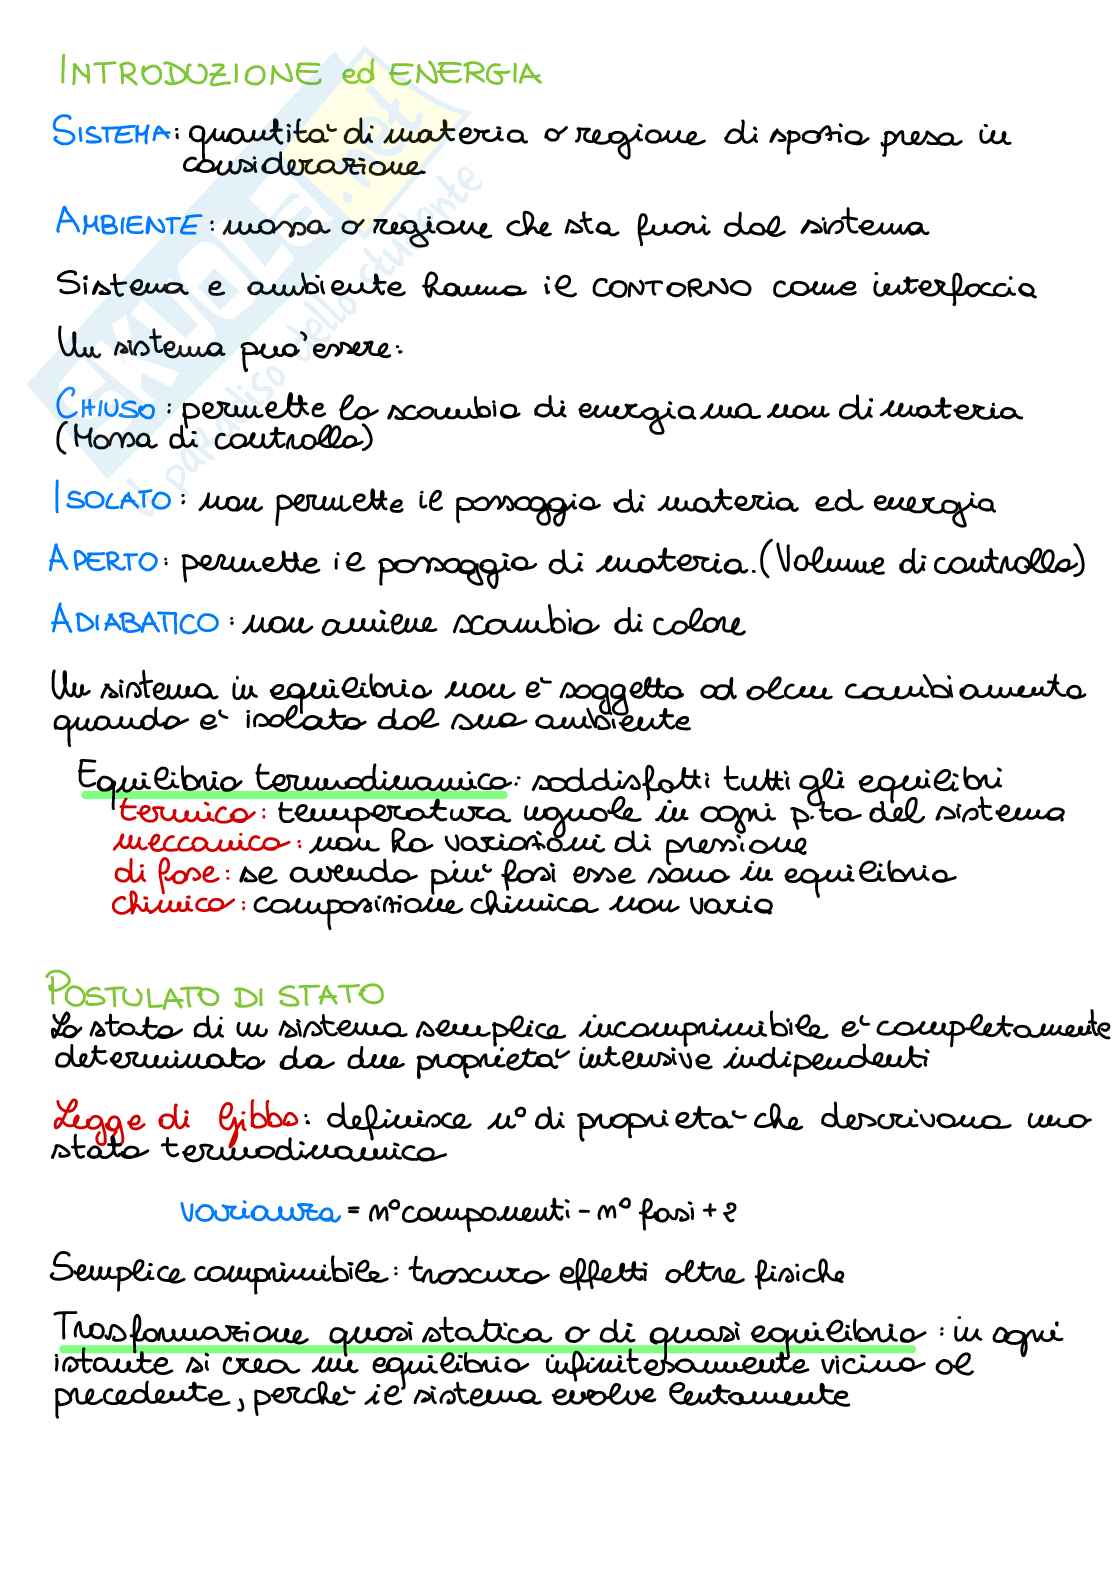 INTRODUZIONE ed ENERGIA
SISTEMA: quantità di materia o regione di spazio presa in
considerazione
AMBIENTE: massa o regione che sta fuori dal sistema
Sistema e ambiente hanno il CONTORNO come interfaccia
Un sistema può essere:
CHIUSO: permette lo scambio di energia ma non di materia
(Massa di controllo)
ISOLATO: non permette il passaggio di materia ed energia
APERTO: permette il passaggio di materia. (Volume di controllo)
ADIABATICO: non avviene scambio di calore
Un sistema in equilibrio non è soggetto ad alcun cambiamento
quando è isolato dal suo ambiente
Equilibrio termodinamico: soddisfatti tutti gli equilibri
termico: temperatura uguale in ogni p.to del sistema
meccanico: non ho variazioni di pressione
di fase: se avendo più fasi esse sono in equilibrio
chimico: composizione chimica non varia
POSTULATO DI STATO
Lo stato di un sistema semplice incomprimibile è completamente
determinato da due proprietà intensive indipendenti
Legge di Gibbs: definisce n° di proprietà che descrivono uno
stato termodinamico
varianza = n° componenti - n° fasi + 2
Semplice comprimibile: trascuro effetti oltre fisiche
Trasformazione quasi statica o di quasi equilibrio: in ogni
istante si crea un equilibrio infinitesamente vicino al
precedente, perchè il sistema evolve lentamente
SKUOLA.net
il paradiso dello studente